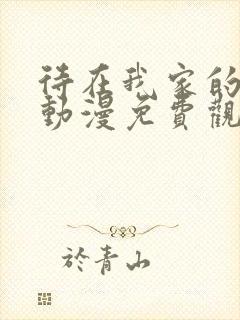 待在我家的
動漫免費觀
於青山